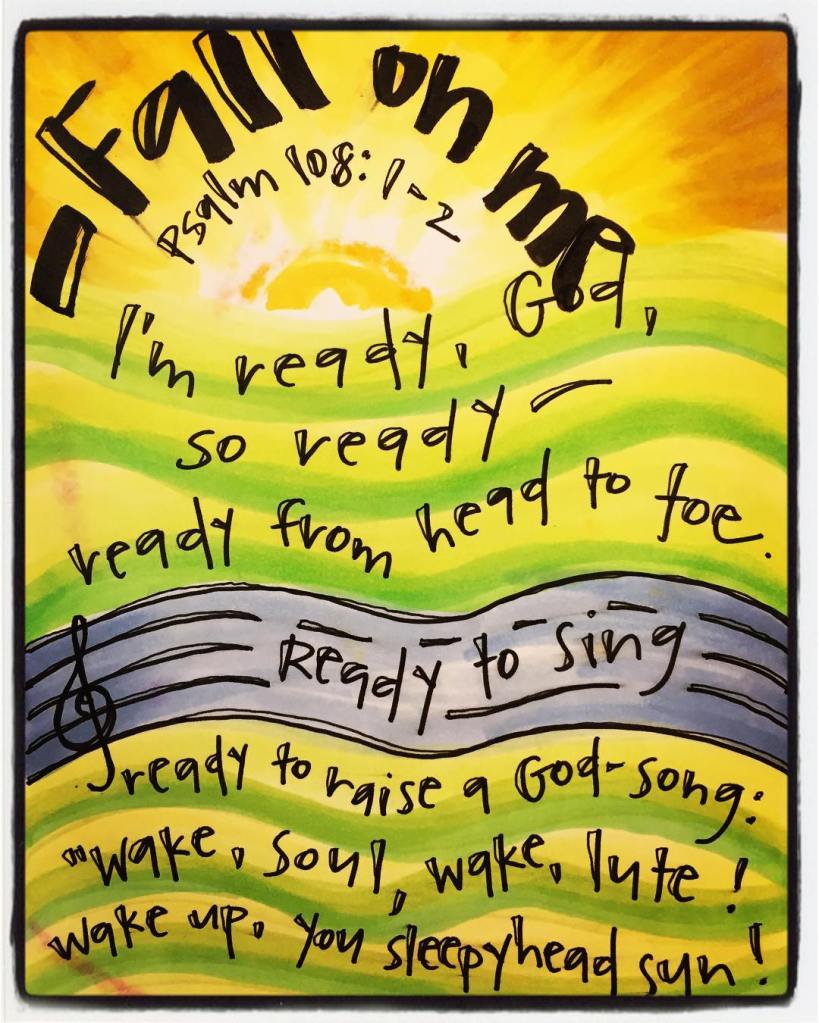 - Fall on me
Psalm 108:1-2
I'm ready, God,
so ready –
ready from head to toe.
Ready to sing
ready to raise a God-song:
"wake, soul, wake, lute!
wake up, you sleepyhead sun!